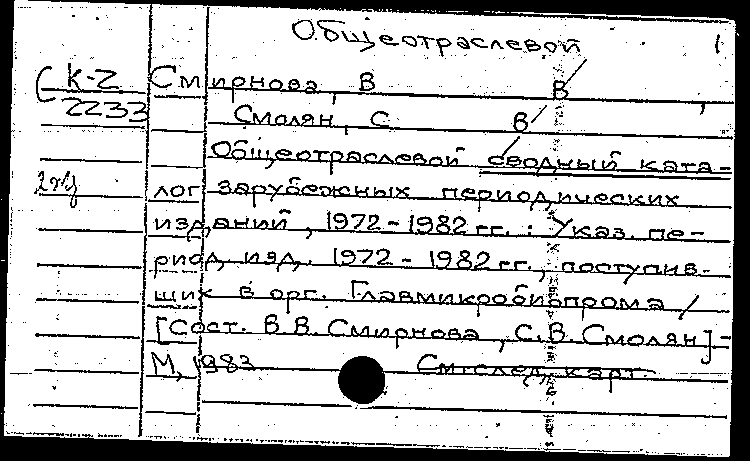 Общеотраслевой 1
К-2 Смирнова, В В
2233 Смолян, С В
Общеотраслевой сводный ката-
2чз лог зарубежных периодических
изданий, 1972-1982 гг. : Указ. пе-
риод. изд. 1972-1982 гг., поступив-
ших в орг. Главмикробиопрома /
[Сост. В.В. Смирнова, С.В. Смолян] -
М, 1983 См. след. карт.